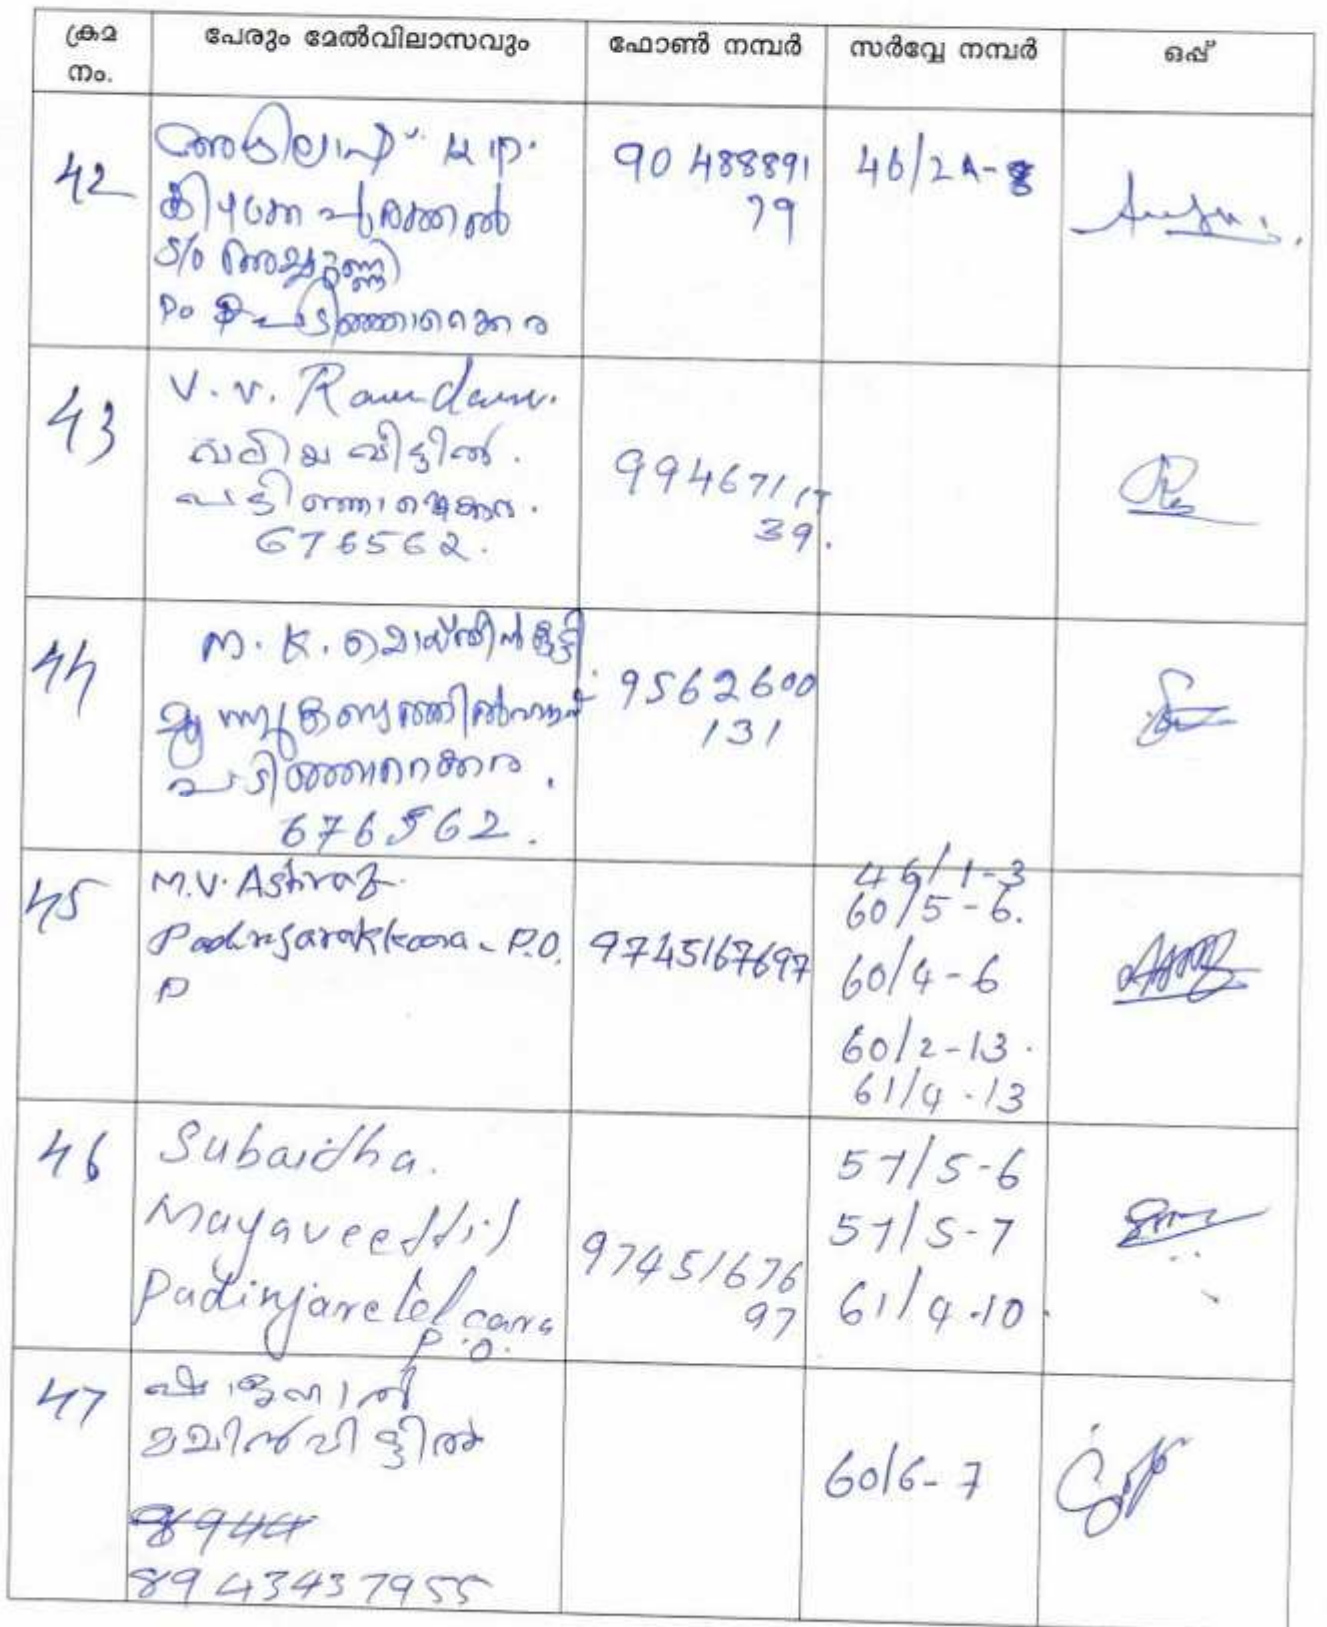 ക്രമ
നം.
പേരും മേൽവിലാസവും
ഫോൺ നമ്പർ
സർവ്വേ നമ്പർ
ഒപ്പ്
42
കിഴക്കേപുരത്തൽ
S/o അയ്യുണ്ണി
Po പടിഞ്ഞാറെക്കര
90 488891
79
46/2A-8
43
V. V.
വലിയ വീട്ടിൽ.
പടിഞ്ഞാറെക്കര.
676562.
99467117
39.
44
M. K. മൊയ്തീൻകുട്ടി
പടിഞ്ഞാറെക്കര.
676562.
9562600
131
45
M.V. Ashraf
Padinjarakkara - P.O.
P
9745167697
46/1-3
60/5-6.
60/4-6
60/2-13.
61/4.13
46
Subaidha.
Mayaveettil
P.O.
97451676
97
57/5-6
57/5-7
61/4.10.
47
ഷാജഹാൻ
വീട്ടിൽ
8944
8943437955
60/6-7